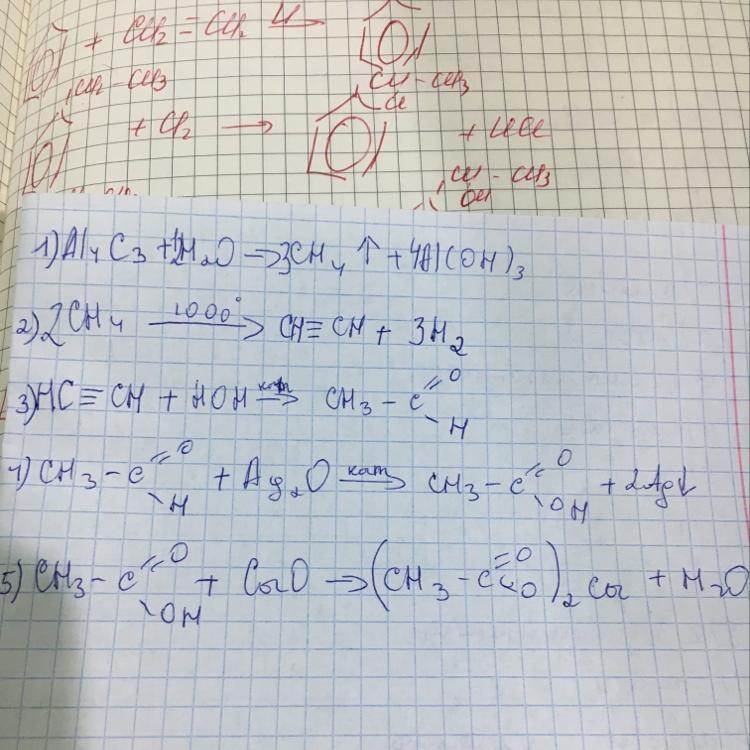 + CH2 = CH2 H
CH2 - CH3
CH - CH3
Cl
+ Cl2 → + HCl
CH - CH3
1) Al4C3 + 12H2O → 3CH4 ↑ + 4Al(OH)3
2) 2CH4 1000° → CH≡CH + 3H2
3) HC≡CH + HOH кат → CH3 - C =O - H
4) CH3 - C =O - H + Ag2O кат → CH3 - C =O - OH + 2Ag↓
5) CH3 - C =O - OH + CaO → (CH3 - C =O - O)2 Ca + H2O